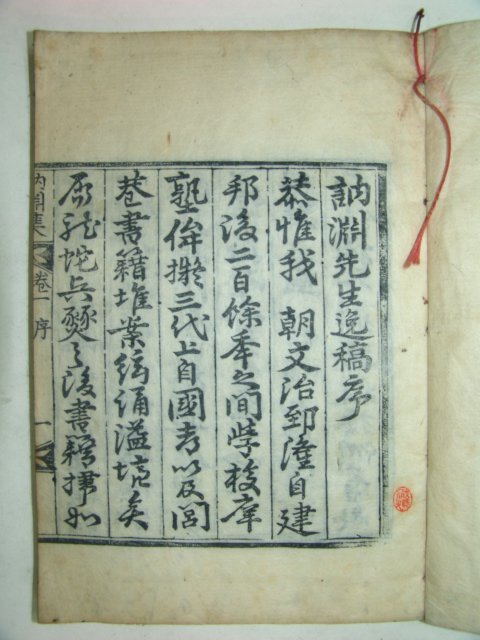 訥淵先生逸稿序
恭惟我 朝文治郅隆自建
邦後二百餘年之間學校庠
塾侔擬三代上自國考以及閭
巷書籍堆案絃誦溢境矣
及龍蛇兵燹之後書籍掃如
訥淵集 卷一 序 一